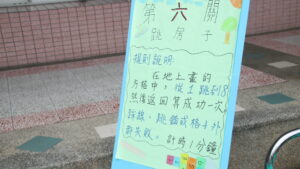 第六關
跳房子
規則說明:
在地上畫的
方格中,從1跳到8
然後返回算成功一次
踩線、跳錯或格子外
都失敗,計時1分鐘